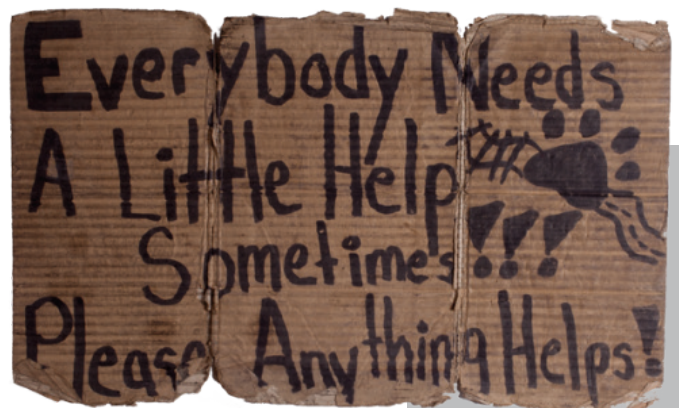 Everybody Needs
A Little Help
Sometimes!!!
Please Anything Helps!